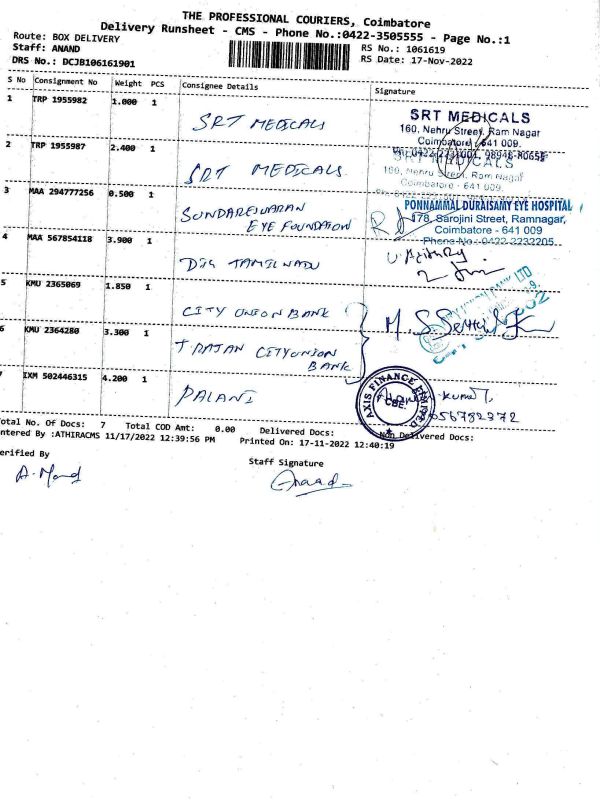 THE PROFESSIONAL COURIERS, Coimbatore
Delivery Runsheet - CMS - Phone No.:0422-3505555 - Page No.:1
Route: BOX DELIVERY
RS No.: 1061619
Staff: ANAND
RS Date: 17-Nov-2022
DRS No.: DCJB106161901
S No Consignment No Weight PCS Consignee Details Signature
1 TRP 1955982 1.000 1 SRT MEDICALS
SRT MEDICALS
160, Nehru Street, Ram Nagar
Coimbatore - 641 009.
2 TRP 1955987 2.400 1 SRT MEDICALS
SRT MEDICALS
160, Nehru Street, Ram Nagar
Coimbatore - 641 009.
3 MAA 294777256 0.500 1 SUNDARESWARAN
EYE FOUNDATION
PONNAMMAL DURAISAMY EYE HOSPITAL
178, Sarojini Street, Ramnagar,
Coimbatore - 641 009
Phone No.: 0422 2232205
4 MAA 567854118 3.900 1 TAMILNADU
5 KMU 2365069 1.850 1 CITY UNION BANK
6 KMU 2364280 3.300 1 CITY UNION
BANK
M.S.
7 IXM 502446315 4.200 1 PALANI
AXIS FINANCE LIMITED
CBE.
Total No. Of Docs: 7 Total COD Amt: 0.00 Delivered Docs: Non Delivered Docs:
Entered By :ATHIRACMS 11/17/2022 12:39:56 PM Printed On: 17-11-2022 12:40:19
Verified By
Staff Signature